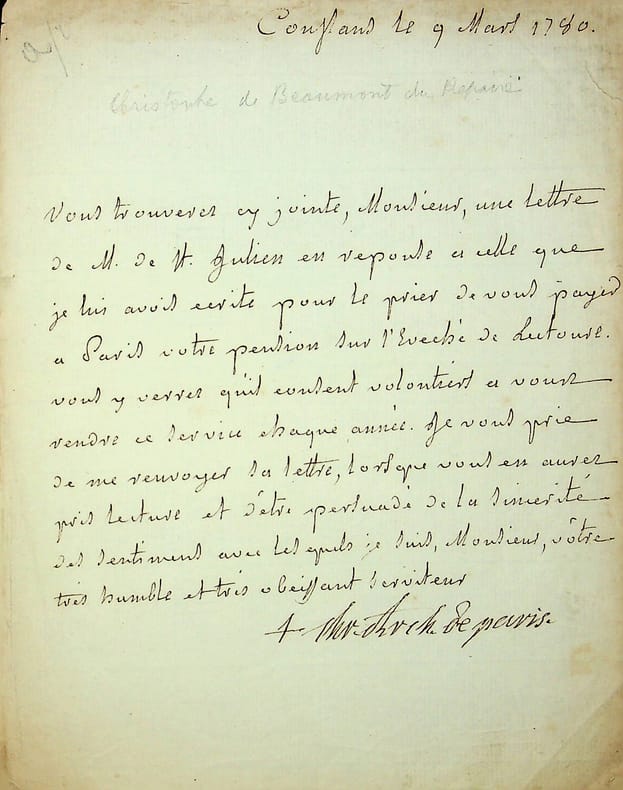 Conflans le 9 Mars 1780.
Christophe de Beaumont du Repaire
Vous trouveres cy jointe, Monsieur, une lettre
de M. de St. Julien en reponse a celle que
je luis avois ecrite pour le prier de vous payer
a Paris votre pension sur l'Eveché de Lectoure.
vous y verres qu'il consent volontiers a vous
rendre ce service chaque année. Je vous prie
de me renvoyer sa lettre, lorsque vous en aurez
pris lecture et d'être persuadé de la sincerité
des sentimens avec lesquels je suis, Monsieur, vôtre
très humble et très obeissant serviteur
+ Chr. Arch. de paris.